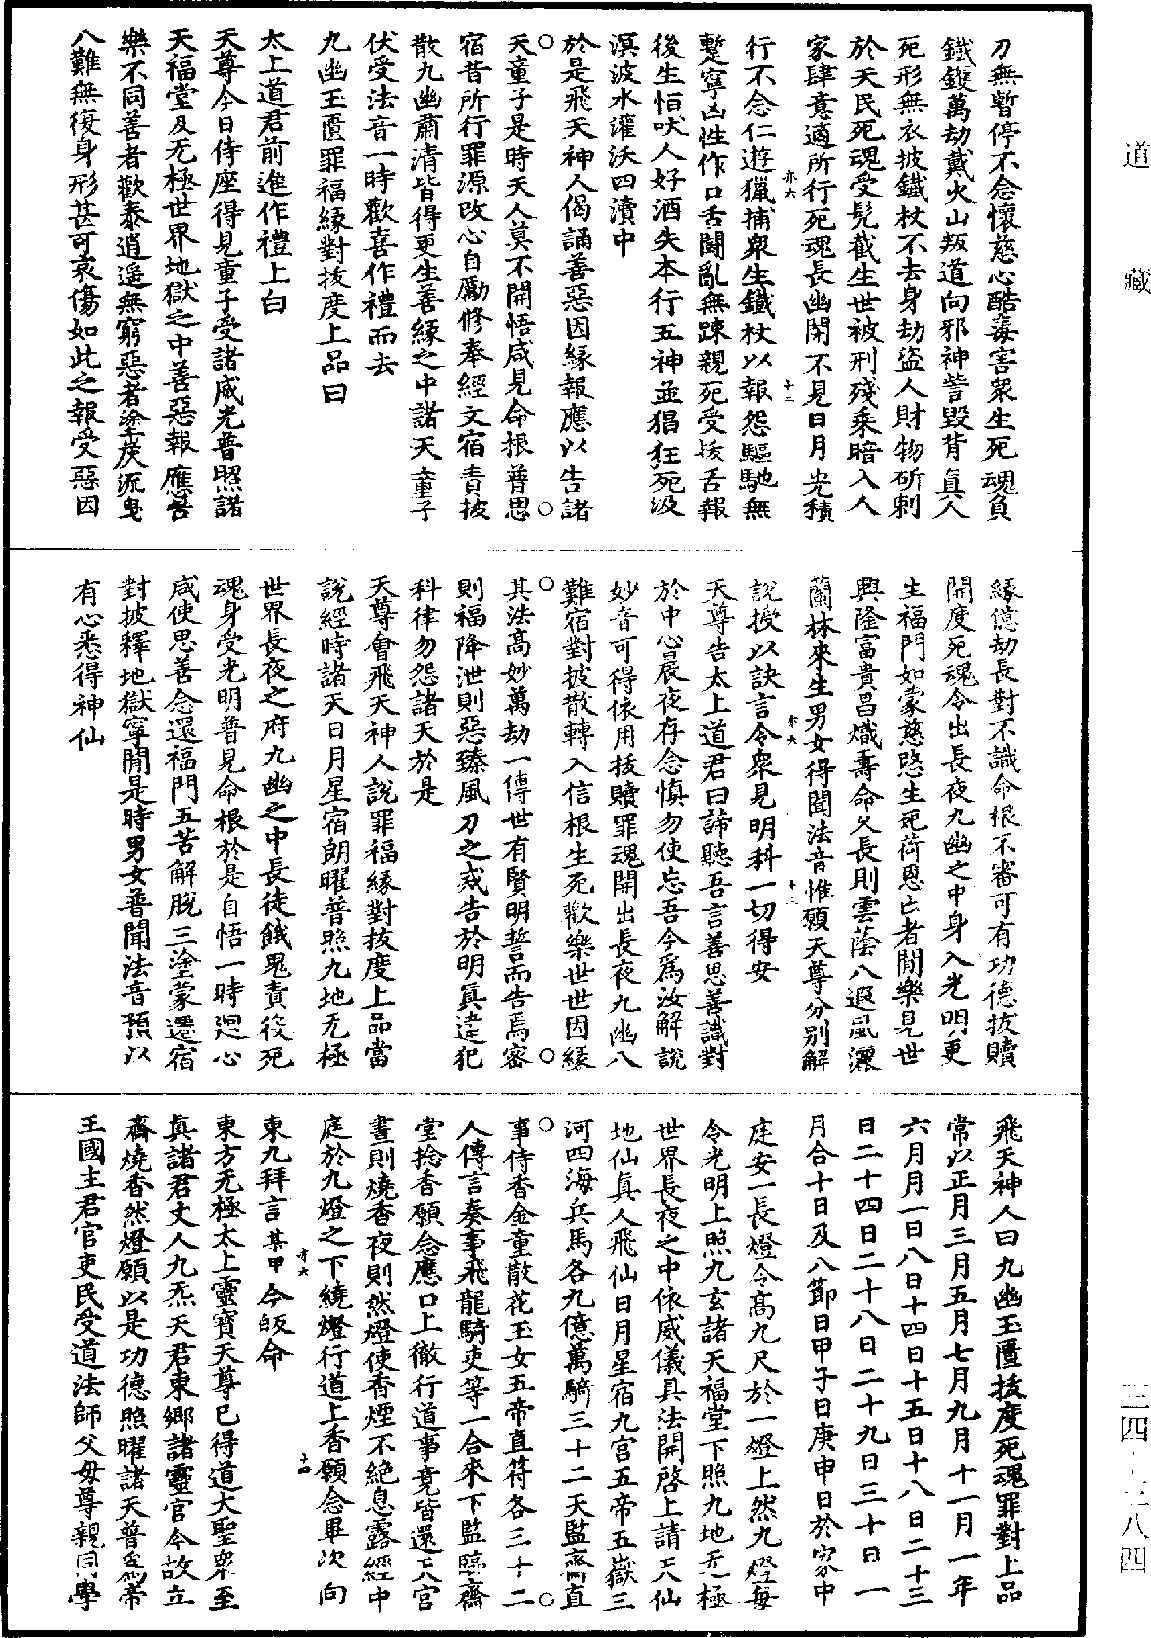 道藏
三四—三八四
刀無暫停不念懷慈心酷毒害衆生死魂負
鐵鍑萬劫戴火山叛道向邪神訾毀背真人
死形無衣披鐵杖不去身劫盜人財物斫刺
於天民死魂受髡截生世被刑殘乘暗入人
家肆意適所行死魂長幽閉不見日月光積
行不念仁遊獵捕衆生鐵杖以報怨驅馳無
蹔寧凶性作口舌鬪亂無踈親死受拔舌報
後生怕吠人好酒失本行五神並猖狂死汲
溟波水灌沃四瀆中
於是飛天神人偈誦善惡因緣報應以告諸
天童子是時天人莫不開悟咸見命根普思
宿昔所行罪源改心自勵修奉經文宿責披
散九幽肅清皆得更生善緣之中諸天童子
伏受法音一時歡喜作禮而去
九幽玉匱罪福緣對拔度上品曰
太上道君前進作禮上白
天尊今日侍座得見童子受諸威光普照諸
天福堂及无極世界地獄之中善惡報應苦
樂不同善者歡泰逍遥無窮惡者塗炭流曳
八難無復身形甚可哀傷如此之報受惡因
緣億劫長對不識命根不審可有功德拔贖
開度死魂令出長夜九幽之中身入光明更
生福門如蒙慈愍生死荷恩亡者閒樂見世
興隆富貴昌熾壽命久長則雲蔭八遐風灑
蘭林來生男女得聞法音惟願天尊分別解
說授以訣言令衆見明科一切得安
天尊告太上道君曰諦聽吾言善思善識對
於中心晨夜存念慎勿使忘吾今爲汝解說
妙音可得依用拔贖罪魂開出長夜九幽八
難宿對披散轉入信根生死歡樂世世因緣
其法高妙萬劫一傳世有賢明誓而告焉密
則福降泄則惡臻風刀之戒告於明真違犯
科律勿怨諸天於是
天尊會飛天神人說罪福緣對拔度上品當
說經時諸天日月星宿朗曜普照九地无極
世界長夜之府九幽之中長徒餓鬼責役死
魂身受光明普見命根於是自悟一時迴心
咸使思善念還福門五苦解脫三塗蒙還宿
對披釋地獄寧閒是時男女普聞法音預以
有心悉得神仙
飛天神人曰九幽玉匱拔度死魂罪對上品
常以正月三月五月七月九月十一月一年
六月月一日八日十四日十五日十八日二十三
日二十四日二十八日二十九日三十日一
月合十日及八節日甲子日庚申日於家中
庭安一長燈令高九尺於一燈上然九燈每
令光明上照九玄諸天福堂下照九地无極
世界長夜之中依威儀具法開啓上請天仙
地仙真人飛仙日月星宿九宮五帝五嶽三
河四海兵馬各九億萬騎三十二天監齋直
事侍香金童散花玉女五帝直符各三十二
人傳言奏事飛龍騎吏等一合來下監臨齋
堂捻香願念應口上徹行道事竟皆還天宮
晝則燒香夜則然燈使香煙不絕息露經中
庭於九燈之下繞燈行道上香願念畢次向
東九拜言某甲今皈命
東方无極太上靈寶天尊已得道大聖衆至
真諸君丈人九炁天君東鄉諸靈官今故立
齋燒香然燈願以是功德照曜諸天普爲帝
王國主君官吏民受道法師父母尊親同學